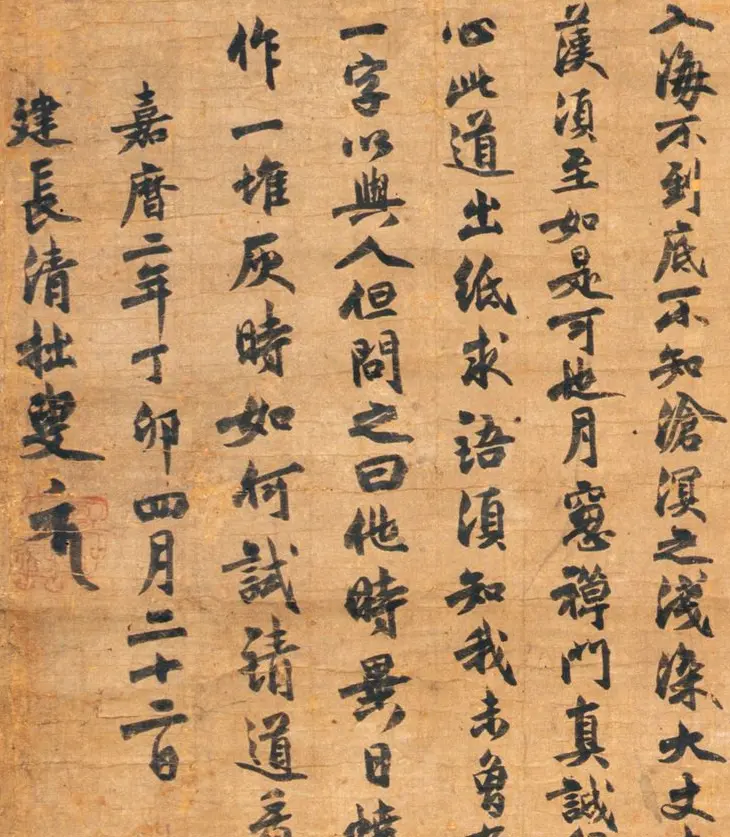 入海不到底不知滄溟之浅深大丈
漢須至如是可也月窓禅門真誠
心此道出紙求語須知我未曾有
一字以與人但問之曰他時異日燒
作一堆灰時如何試請道看
嘉暦二年丁卯四月二十二日
建長清拙叟